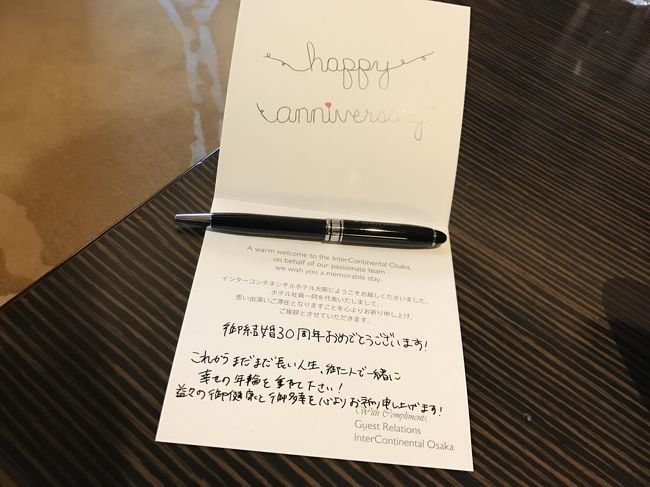 happy
anniversary
A warm welcome to the InterContinental Osaka,
on behalf of our passionate team
we wish you a memorable stay.
インターコンチネンタルホテル大阪にようこそお越しくださいました。
ホテル社員一同を代表いたしまして、
思い出深いご滞在となりますことを心よりお祈り申し上げ、
ご挨拶とさせていただきます。
御結婚30周年おめでとうございます!
これからまだまだ長い人生、御二人で一緒に
幸せの年輪を重ねて下さい!
益々の御健康と御多幸を心よりお祈り申し上げます!
With Compliments,
Guest Relations
InterContinental Osaka